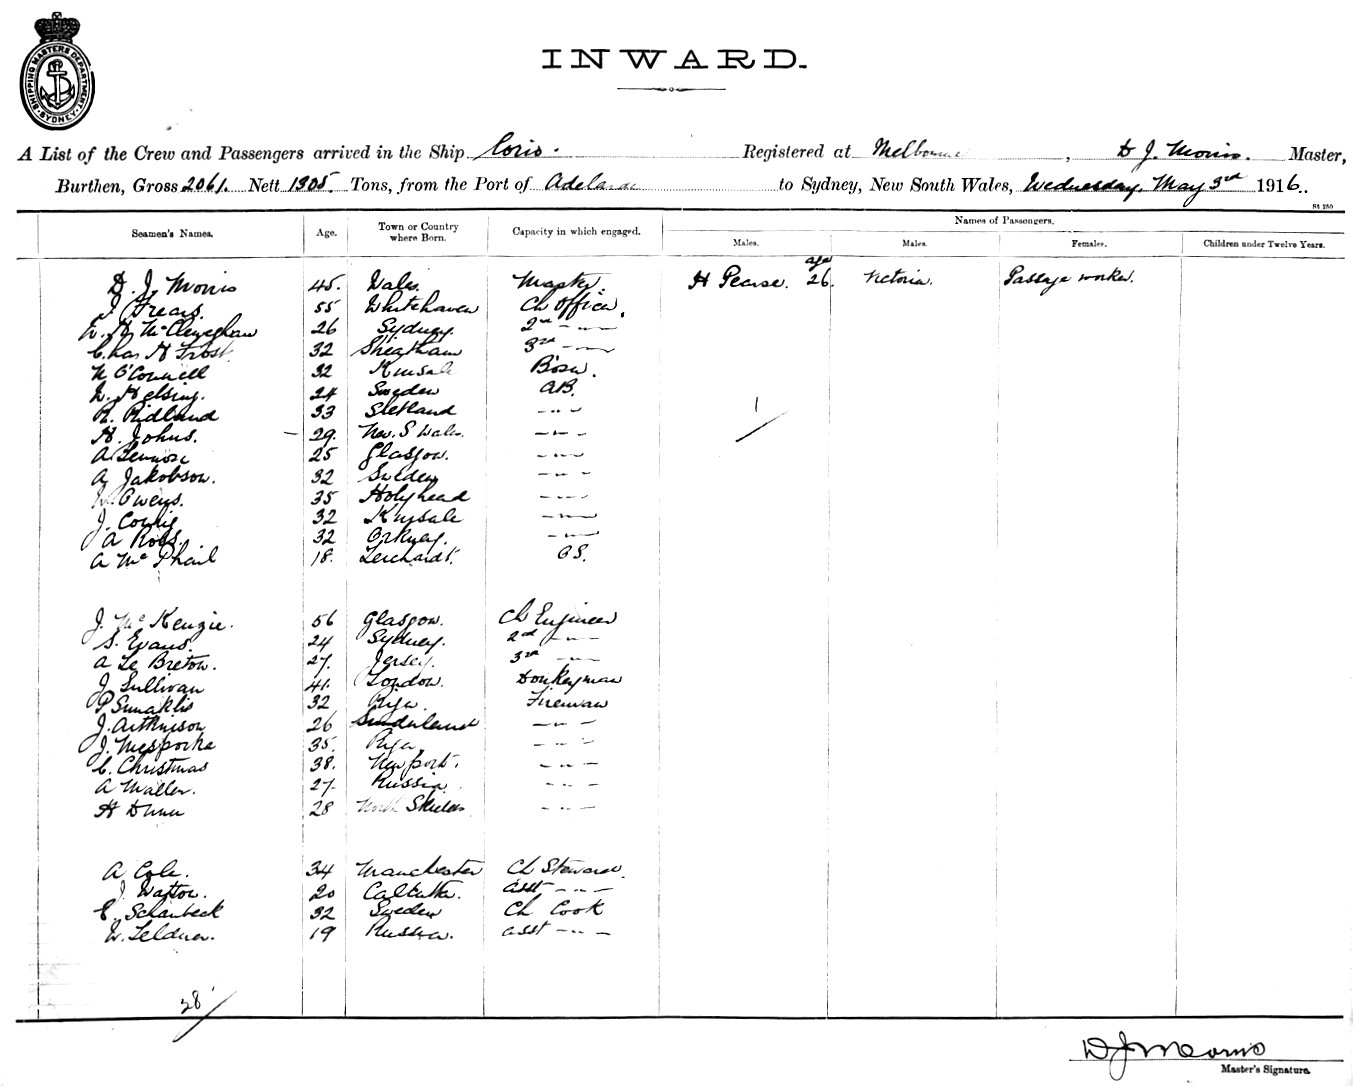 SHIPPING MASTERS DEPARTMENT
SYDNEY
INWARD.
A List of the Crew and Passengers arrived in the Ship Corio. Registered at Melbourne, D J. Morris. Master,
Burthen, Gross 2061. Nett 1305. Tons, from the Port of Adelaide to Sydney, New South Wales, Wednesday, May 3rd 1916..
St 250
Seamen's Names. Age. Town or Country where Born. Capacity in which engaged. Names of Passengers.
Males. Males. Females. Children under Twelve Years.
age
D. J. Morris 45. Wales. Master. H Pearse. 26. Victoria. Passage worker.
J Frears. 55 Whitehaven Ch Officer.
26 Sydney. 2nd -"-
Chas H Frost. 32 3rd -"-
N O'Connell 32 Kinsale Bosn.
W. Helsing. 24 Sweden AB.
R. Ridland 33 Shetland -"-
H. Johns. - 29. New. S Wales. -"-
A Lennox 25 Glasgow. -"-
A Jakobson. 32 Sweden -"-
W. Owens. 35 Holyhead -"-
J. 32 Kinsale -"-
A Ross. 32 Orkney. -"-
A McPhail 18. Leichardt. OS.
J. McKenzie. 56 Glasgow. Ch Engineer
S. Evans. 24 Sydney. 2nd -"-
A Le Breton. 27. Jersey. 3rd -"-
J Sullivan 41. London. Donkeyman
P 32 Riga. Fireman
J. Aitkinson 26 Sunderland -"-
J. 35. Riga. -"-
C. Christmas 38. Newport. -"-
A Maller. 27. Russia. -"-
H Dunn 28 North Shields -"-
A Cole. 34 Manchester Ch Steward.
J 20 Calcutta. asst -"-
E. Schanbeck 32 Sweden Ch Cook
W. Leldner. 19 Russia. asst -"-
1
28
D J Morris
Master's Signature.